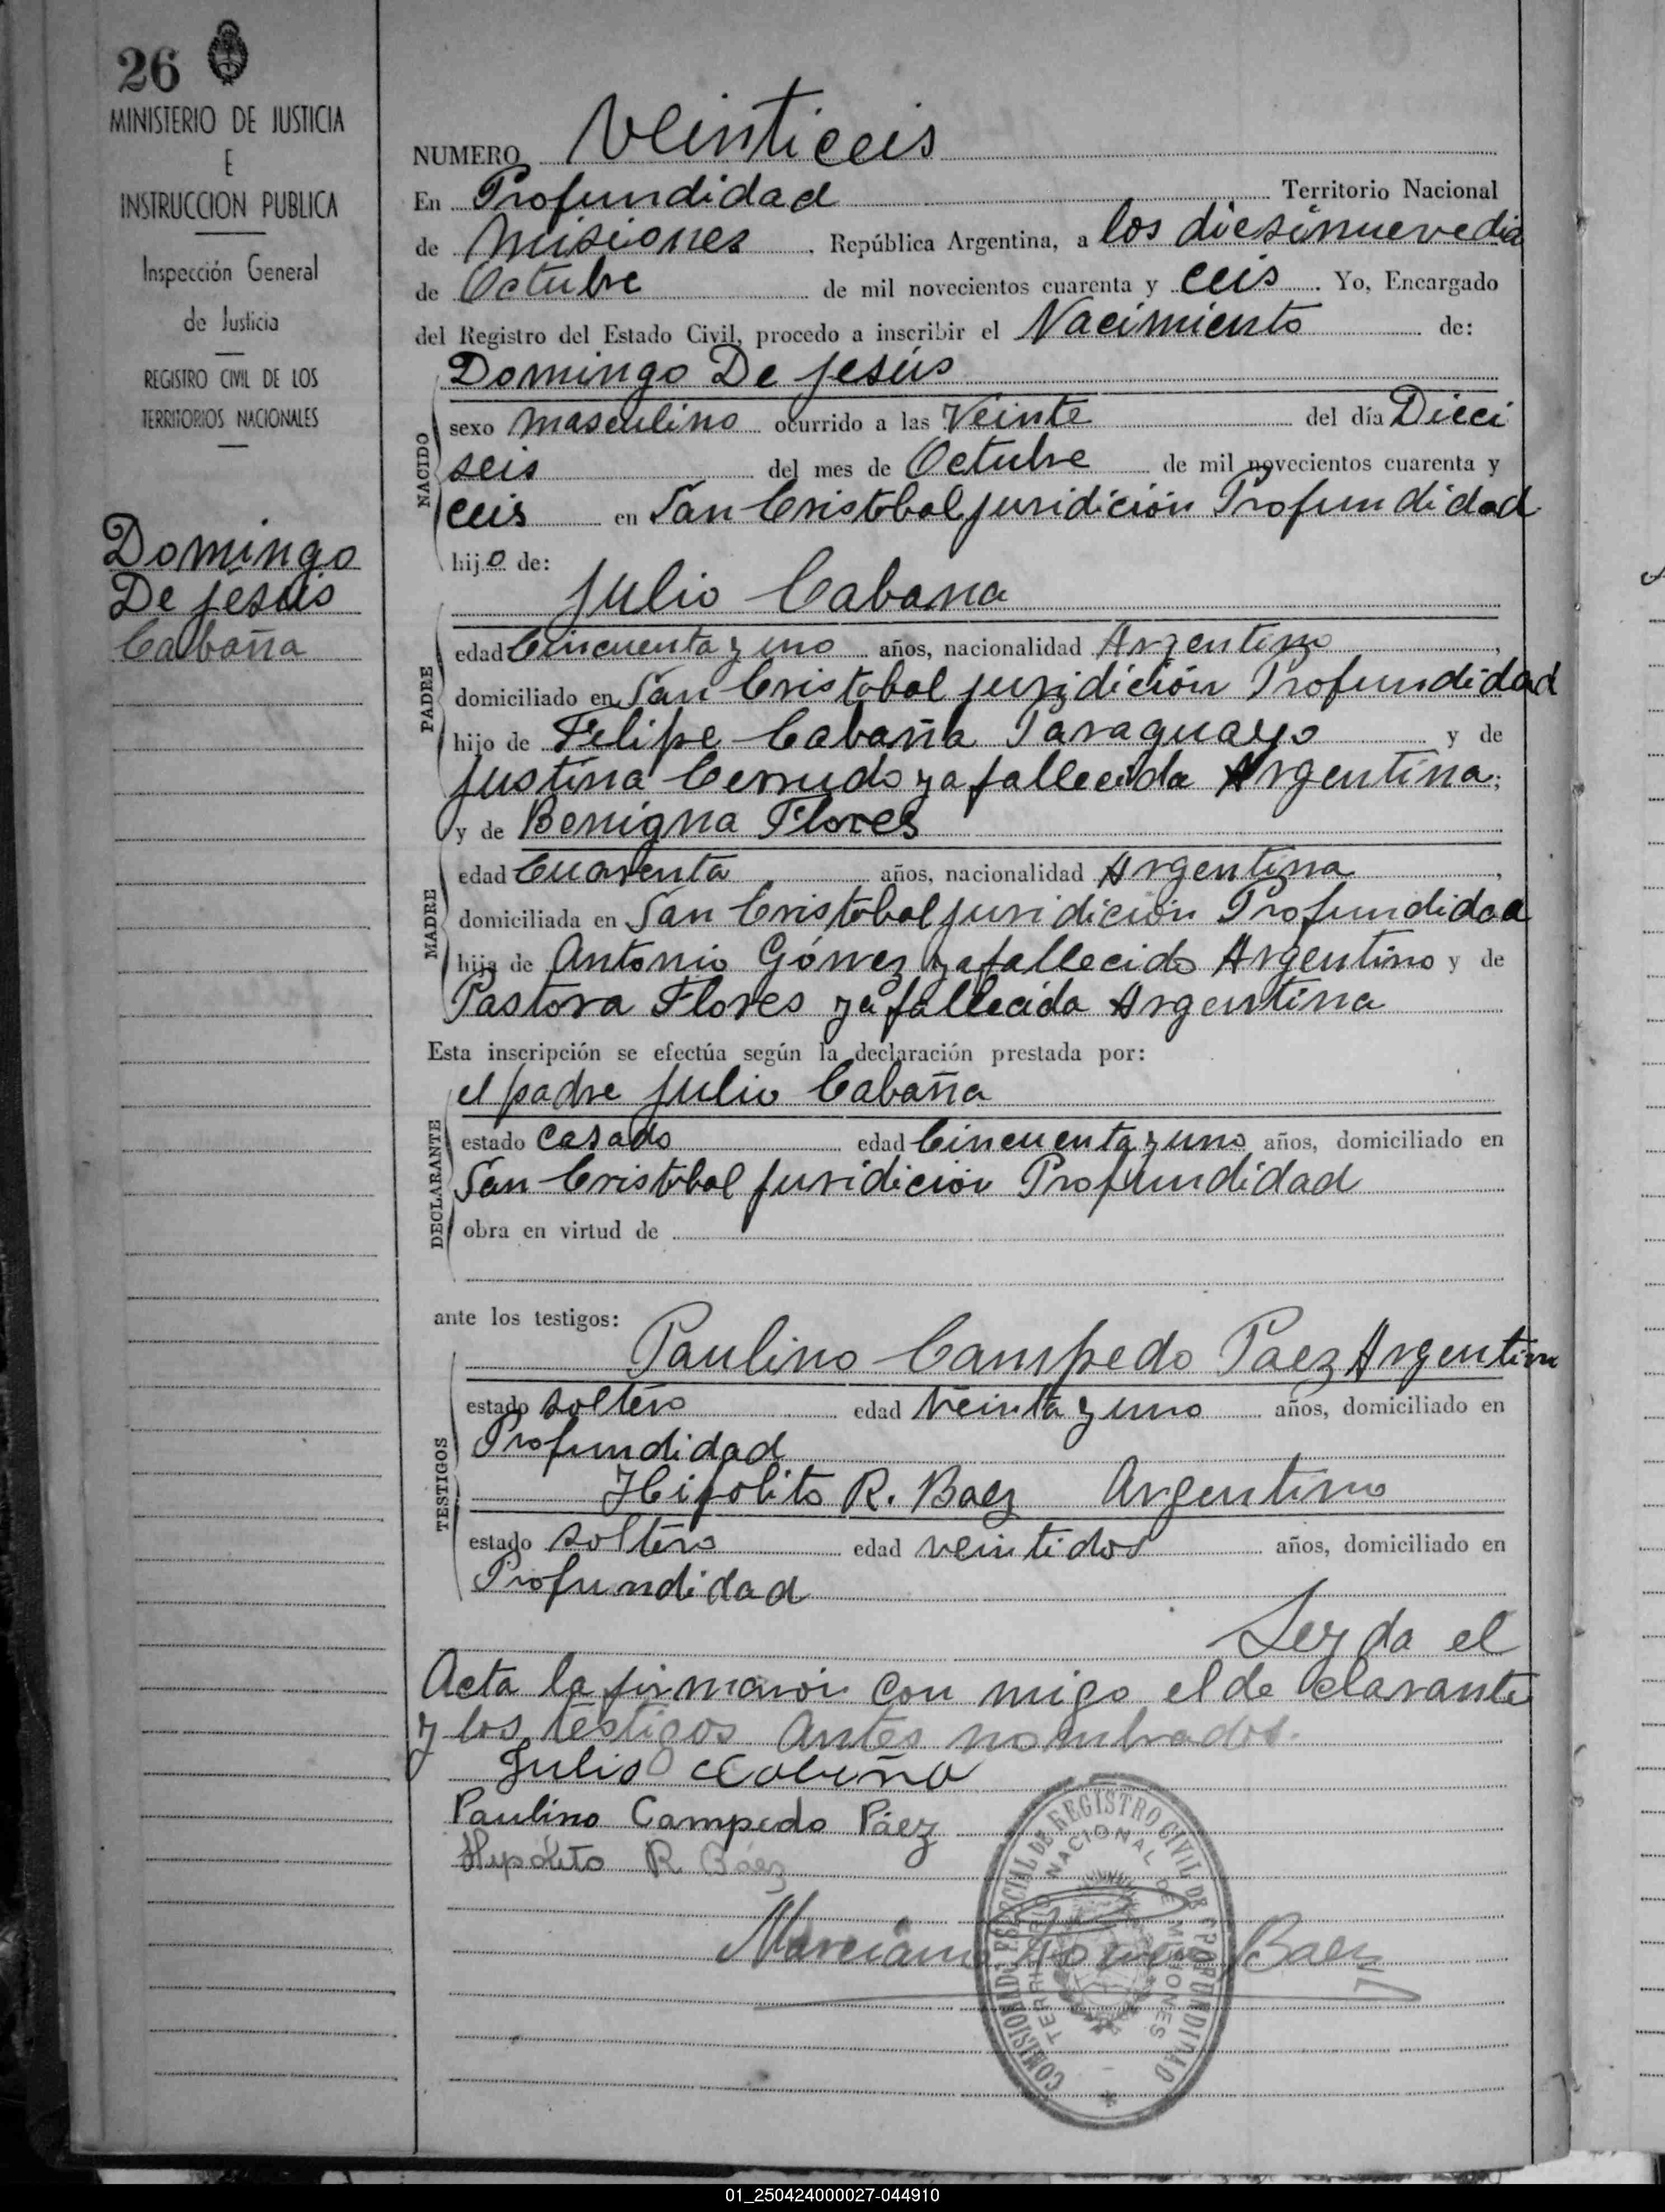 26
MINISTERIO DE JUSTICIA
E
INSTRUCCION PUBLICA
Inspección General
de Justicia
REGISTRO CIVIL DE LOS
TERRITORIOS NACIONALES
Domingo
De jesús
Cabaña
NUMERO Veinticeis
En Profundidad Territorio Nacional
de Misiones. República Argentina, a los diesinueve dia
de Octubre de mil novecientos cuarenta y ceis. Yo, Encargado
del Registro del Estado Civil, procedo a inscribir el Nacimiento de:
Domingo De jesús
NACIDO
sexo masculino ocurrido a las Veinte del día Dieci
seis del mes de Octubre de mil novecientos cuarenta y
ceis en San Cristobal juridición Profundidad
hijo de:
Julio Cabana
PADRE
edad Cincuenta y uno años, nacionalidad Argentino,
domiciliado en San Cristobal juridición Profundidad
hijo de Felipe Cabaña Paraguayo y de
Justina Cerrudo ya fallecida Argentina;
y de Benigna Flores
MADRE
edad Cuarenta años, nacionalidad Argentina,
domiciliada en San Cristobal juridición Profundidad
hija de Antonio Gómez ya fallecido Argentino y de
Pastora Flores ya fallecida Argentina
Esta inscripción se efectúa según la declaración prestada por:
el padre Julio Cabaña
DECLARANTE
estado casado edad Cincuenta y uno años, domiciliado en
San Cristobal juridición Profundidad
obra en virtud de
ante los testigos:
Paulino Campedo Paez Argentino
TESTIGOS
estado soltero edad veinta y uno años, domiciliado en
Profundidad
Hipolito R. Baez Argentino
estado soltero edad veintidos años, domiciliado en
Profundidad
Leyda el
Acta la firmaron con migo el de clarante
y los testigos antes nombrados.
Julio Cabaña
Paulino Campedo Páez
Hypólito R Báez
Marciano Baez
COMISIONADO ESPECIAL DE REGISTRO CIVIL DE PROFUNDIDAD
TERRITORIO NACIONAL DE MISIONES
01_250424000027-044910